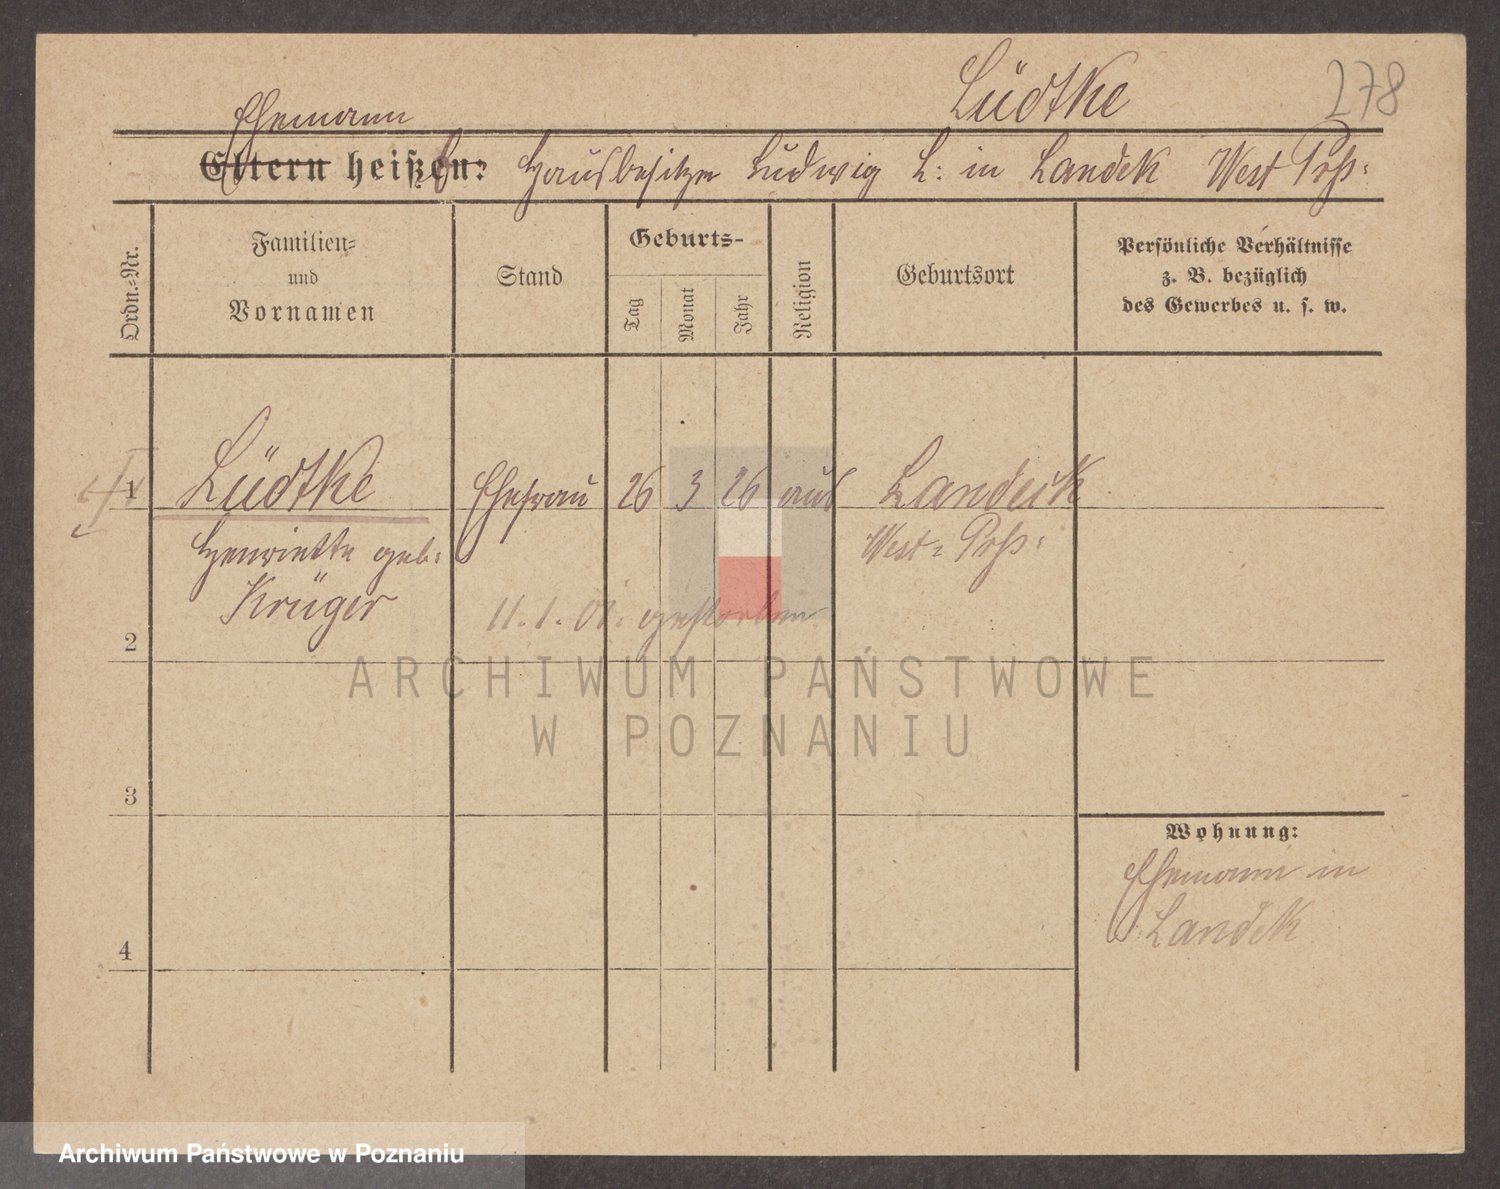 Lüdtke
278
Ehemann
Eltern heißen: Hausbesitzer Ludwig L: in Landek West Prß:
Ordn.-Nr.
Familien-
und
Vornamen
Stand
Geburts-
Tag
Monat
Jahr
Religion
Geburtsort
Persönliche Verhältnisse
z. B. bezüglich
des Gewerbes u. s. w.
1 Lüdtke Ehefrau 26 3 26 Landeck
Henriette geb: West= Prß:
Krüger
11.1.01. gestorben
2
ARCHIWUM PAŃSTWOWE
W POZNANIU
3
Wohnung:
Ehemann in
Landek
4
Archiwum Państwowe w Poznaniu